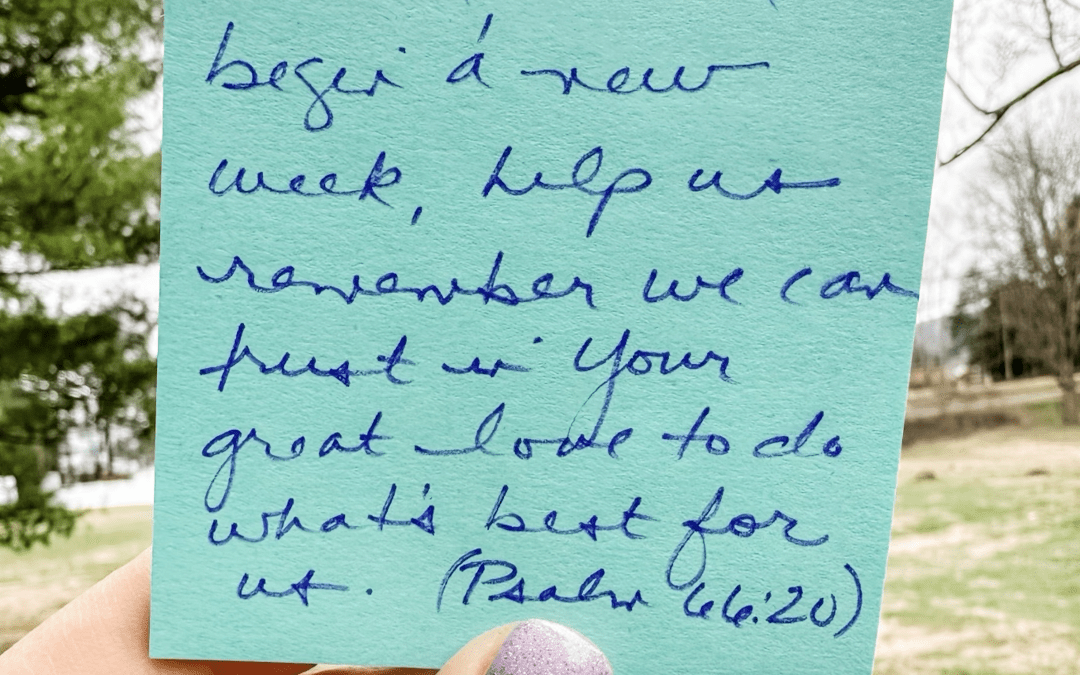 begin a new
week, help us
remember we can
trust in Your
great love to do
what's best for
us. (Psalm 66:20)